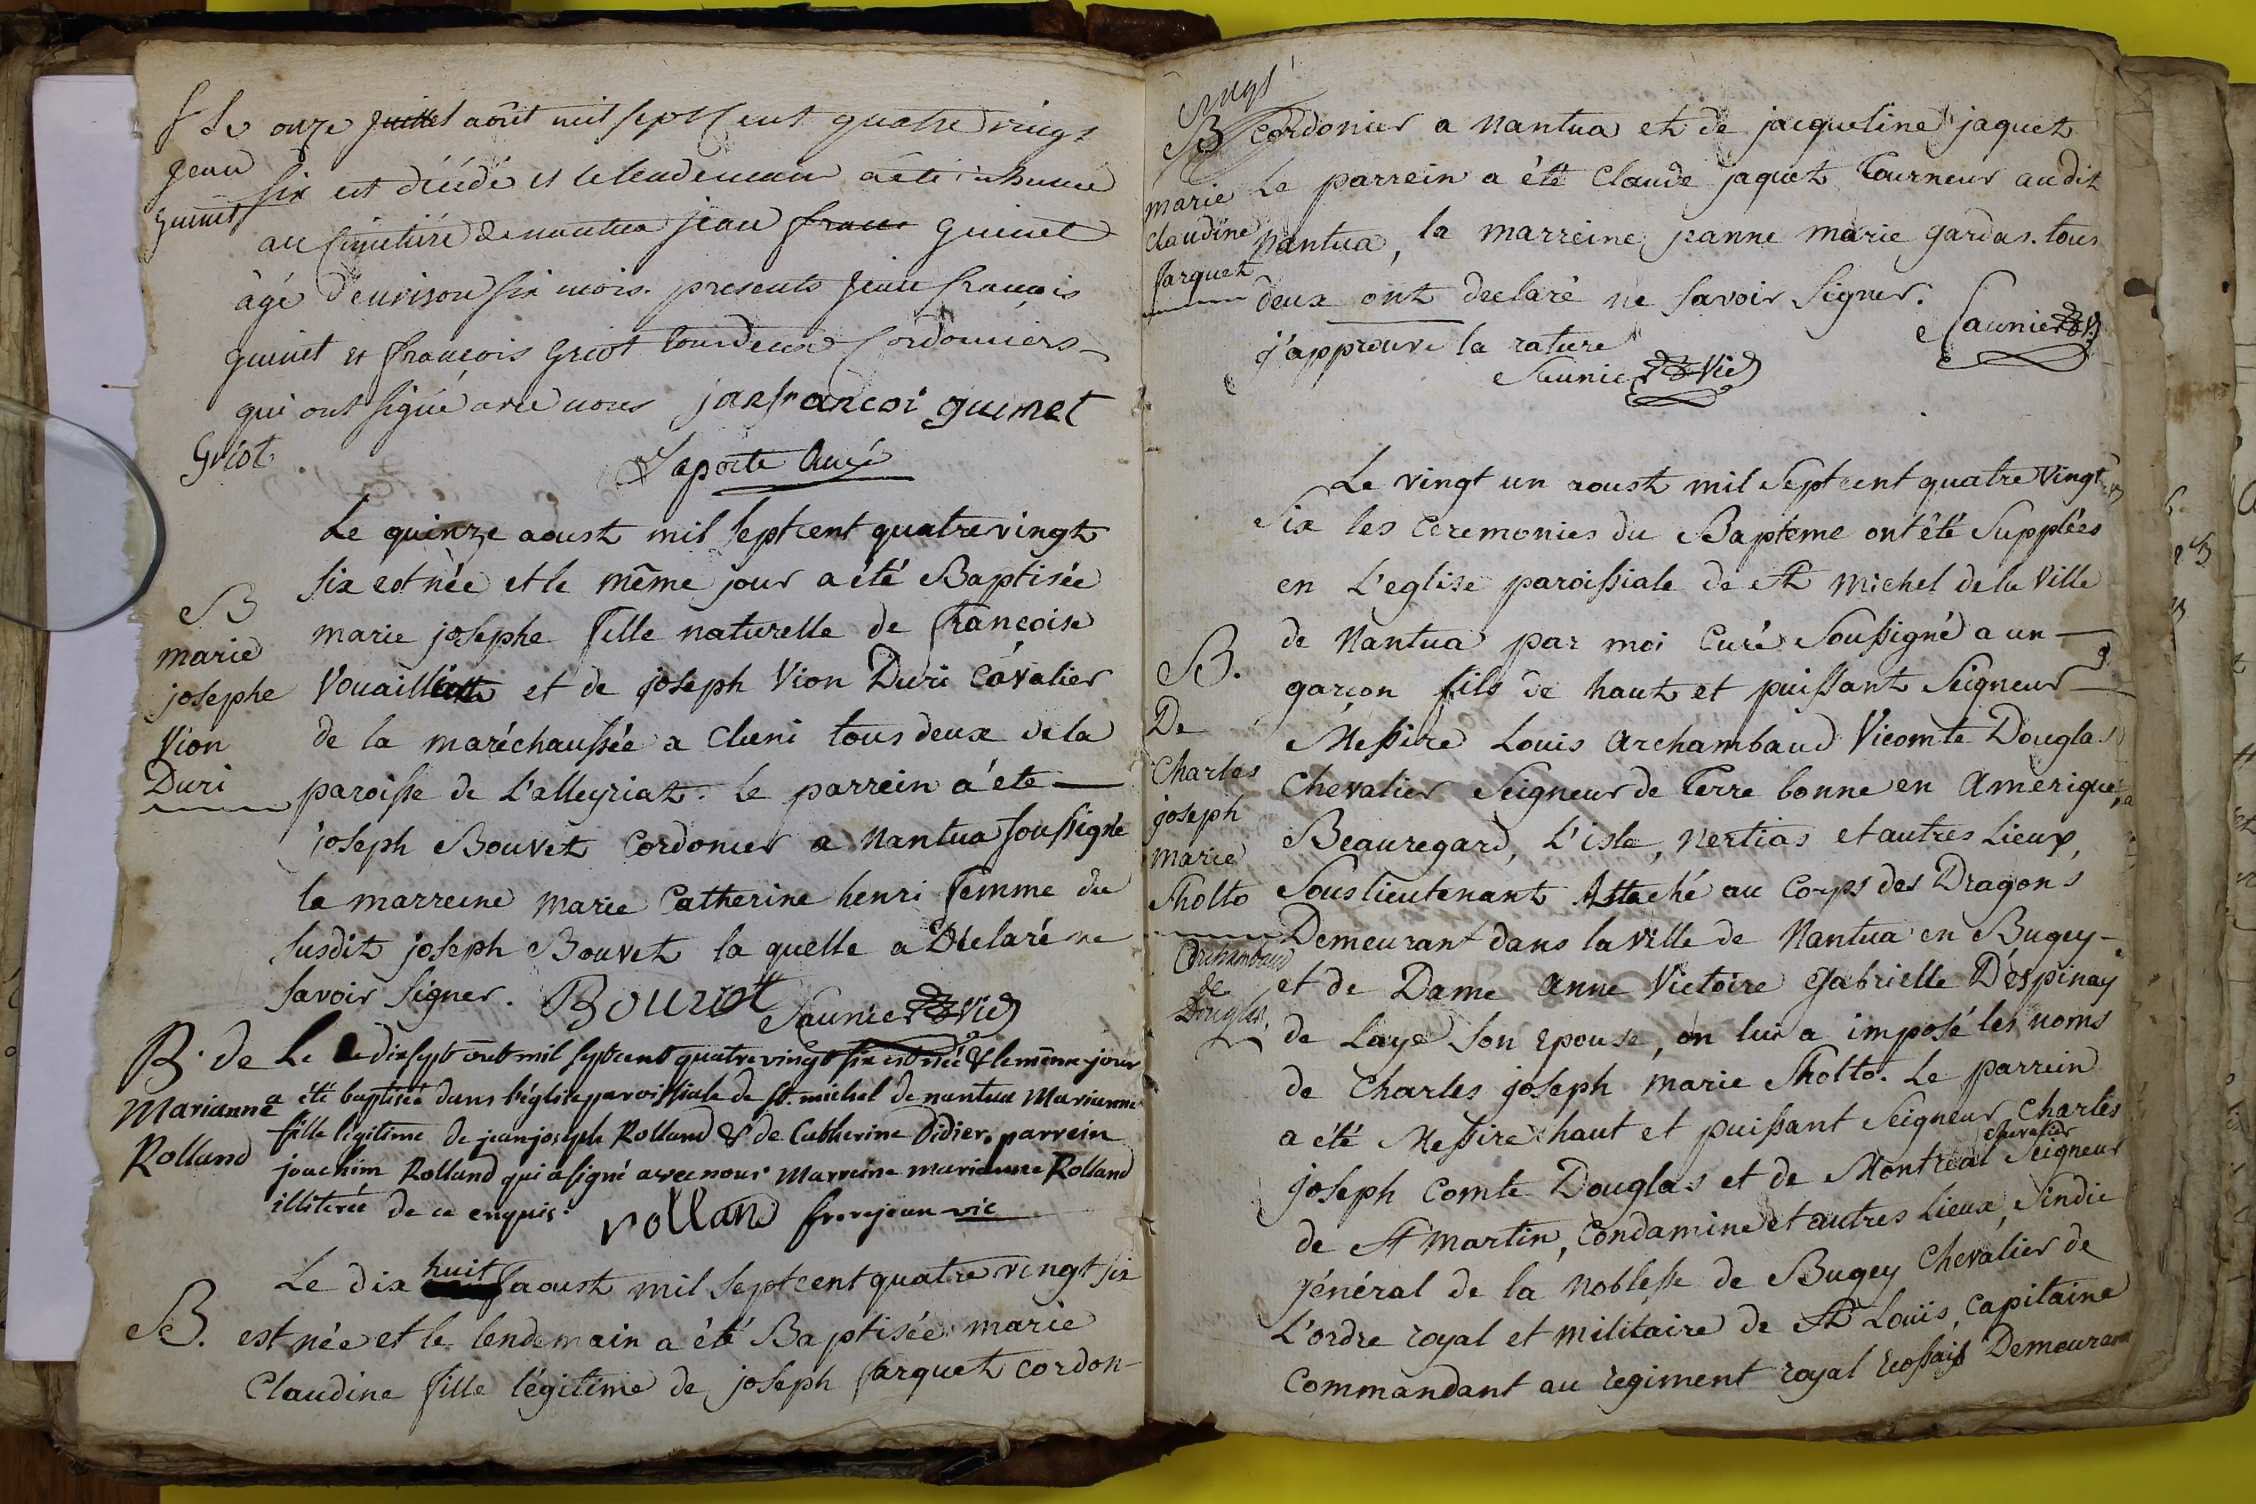 S Le onze Juillet août mil sept cent quatre vingt
Jean
Guinet
six est décédé et le lendemain a été inhumé
au Cimetière de nantua jean franc Guinet
âgé d'environ six mois. presents Jean françois
guinet et françois Griot tous deux Cordonniers
qui ont signé avec nous janfrancoi guinet
Griot
Laporte Curé
Le quinze aoust mil sept cent quatre vingt
six est née et le même jour a été Baptisée
B
marie
josephe
Vion
Duri
marie josephe fille naturelle de françoise
et de joseph Vion Duri Cavalier
de la maréchaussée a Cluni tous deux de la
paroisse de L'alleyriat. Le parrein a éte
joseph Bouvet Cordonier a Nantua soussigné
la marreine Marie Catherine henri femme du
susdit joseph Bouvet la quelle a Déclaré ne
savoir signer. Bouvet
Saunier Vic
B. de
Marianne
Rolland
Le dix sept aout mil sept cent quatre vingt six est née & le même jour
a été baptisée dans l'église paroissiale de st. michel de nantua Marianne
fille legitime de jean joseph Rolland & de Catherine Didier. parrein
joachim Rolland qui a signé avec nous Marreine marianne Rolland
illiterée de ce enquis.
rolland frerejean vic
Le dix huit aoust mil sept cent quatre vingt six
B. est née et le lendemain a été Baptisée marie
Claudine fille légitime de joseph farquet cordon-
B
marie
claudine
farquet
Cordonier a Nantua et de jacqueline jaquet
Le parrein a été Claude jaquet Tourneur audit
Nantua, la marreine jeanne marie gardas. tous
deux ont declaré ne savoir signer.
Saunier V
j'approuve la rature
Saunier Vic
Le vingt un aoust mil Sept cent quatre vingt
Six les Ceremonies du Bapteme ont été Supplées
en L'eglise paroissiale de St Michel de la Ville
de Nantua par moi Curé Soussigné a un
B.
De
Charles
joseph
marie
Sholto
Archambaud
de
Douglas,
garçon fils de haut et puissant Seigneur
Messire Louis Archambaud Vicomte Douglas
Chevalier Seigneur de Terre bonne en Amerique,
Beauregard, L'isle, Nertias et autres Lieux,
Souslieutenant Attaché au Corps des Dragons
Demeurant dans la Ville de Nantua en Bugey
et de Dame Anne Victoire Gabrielle D'espinay
de Laye son Epouse, on lui a imposé les noms
de Charles joseph marie Sholto. Le parrein
a été Messire haut et puissant Seigneur Charles
joseph Comte Douglas et de Montreal chevalier Seigneur
de St Martin, Condamine et autres Lieux, Sindic
général de la Noblesse de Bugey Chevalier de
L'ordre royal et militaire de St Louis, Capitaine
Commandant au regiment royal Ecossais Demeurant